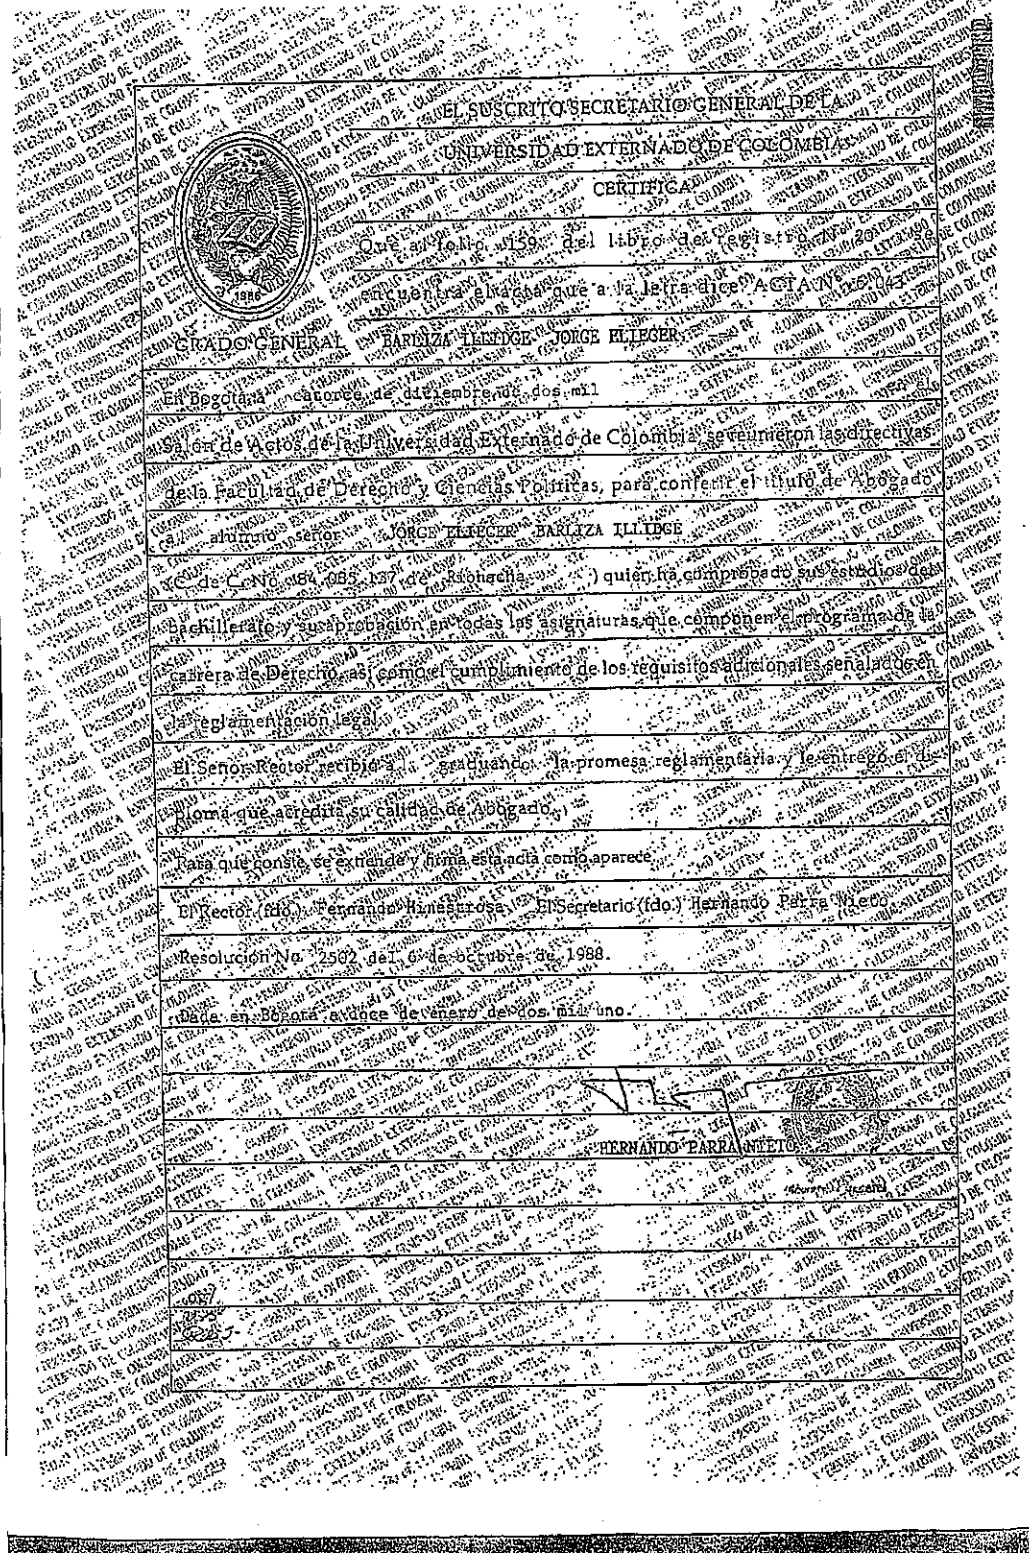 EL SUSCRITO SECRETARIO GENERAL DE LA
UNIVERSIDAD EXTERNADO DE COLOMBIA
CERTIFICA
Que al folio 159 del libro de registro No. 20 se
encuentra el acta que a la letra dice: ACTA No. 6.043
1886
GRADO GENERAL BARLIZA ILLIDGE JORGE ELIECER
En Bogotá, a catorce de diciembre de dos mil en el
Salón de Actos de la Universidad Externado de Colombia, se reunieron las directivas
de la Facultad de Derecho y Ciencias Políticas, para conferir el título de Abogado
al alumno señor JORGE ELIECER BARLIZA ILLIDGE
(C. de C. No. 84.085.137 de Riohacha ) quien ha comprobado sus estudios de
bachillerato y su aprobación en todas las asignaturas que componen el programa de la
carrera de Derecho, así como el cumplimiento de los requisitos adicionales señalados en
la reglamentación legal.
El Señor Rector recibió al graduando la promesa reglamentaria y le entregó el di-
ploma que acredita su calidad de Abogado.
Para que conste, se extiende y firma esta acta como aparece.
El Rector (fdo.) Fernando Hinestrosa El Secretario (fdo.) Hernando Parra Nieto
Resolución No. 2502 del 6 de octubre de 1988.
Dada en Bogotá a doce de enero de dos mil uno.
HERNANDO PARRA NIETO